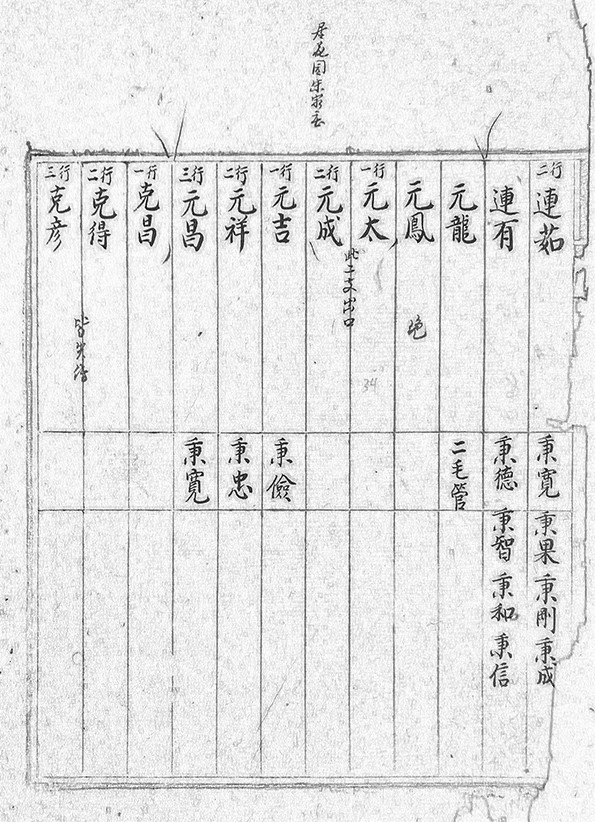 居花園朱家谷
二行 連茹 秉寬 秉果 秉剛 秉成
連有 秉德 秉智 秉和 秉信
元龍 二毛管
元鳳 絶
一行 元太 此二支出口
二行 元成
一行 元吉 秉儉
二行 元祥 秉忠
三行 元昌 秉寬
一行 克昌
二行 克得 皆失传
三行 克彦
34